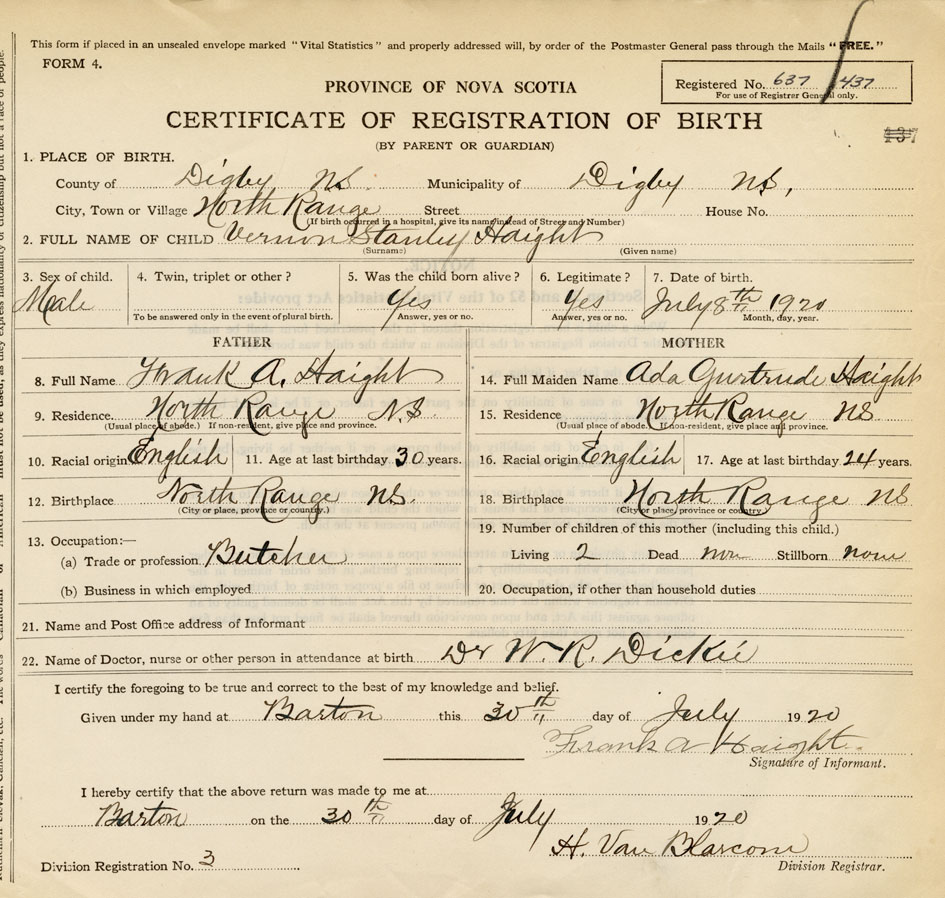 This form if placed in an unsealed envelope marked "Vital Statistics" and properly addressed will, by order of the Postmaster General pass through the Mails "FREE."
FORM 4.
Registered No. 637 437
For use of Registrar General only.
PROVINCE OF NOVA SCOTIA
CERTIFICATE OF REGISTRATION OF BIRTH
437
(BY PARENT OR GUARDIAN)
1. PLACE OF BIRTH.
County of Digby NS. Municipality of Digby NS,
City, Town or Village North Range Street House No.
(If birth occurred in a hospital, give its name instead of Street and Number)
2. FULL NAME OF CHILD Vernon Stanley Haight
(Surname) (Given name)
3. Sex of child. 4. Twin, triplet or other? 5. Was the child born alive? 6. Legitimate? 7. Date of birth.
Male Yes Yes July 8th 1920
To be answered only in the event of plural birth. Answer, yes or no. Answer, yes or no. Month, day, year.
FATHER MOTHER
8. Full Name Frank A. Haight 14. Full Maiden Name Ada Gurtrude Haight
9. Residence. North Range N.S. 15. Residence North Range NS
(Usual place of abode.) If non-resident, give place and province. (Usual place of abode.) If non-resident, give place and province.
10. Racial origin English 11. Age at last birthday 30 years. 16. Racial origin English 17. Age at last birthday 24 years.
12. Birthplace North Range NS. 18. Birthplace North Range NS
(City or place, province or country.) (City or place, province or country.)
13. Occupation:— 19. Number of children of this mother (including this child.)
(a) Trade or profession Butcher Living 2 Dead non Stillborn none
(b) Business in which employed 20. Occupation, if other than household duties
21. Name and Post Office address of Informant
22. Name of Doctor, nurse or other person in attendance at birth Dr W. R. Dickie
I certify the foregoing to be true and correct to the best of my knowledge and belief.
Given under my hand at Barton this 30th day of July 1920
Frank A Haight
Signature of Informant.
I hereby certify that the above return was made to me at
Barton on the 30th day of July 1920
H. Van Blarcom
Division Registration No. 3 Division Registrar.